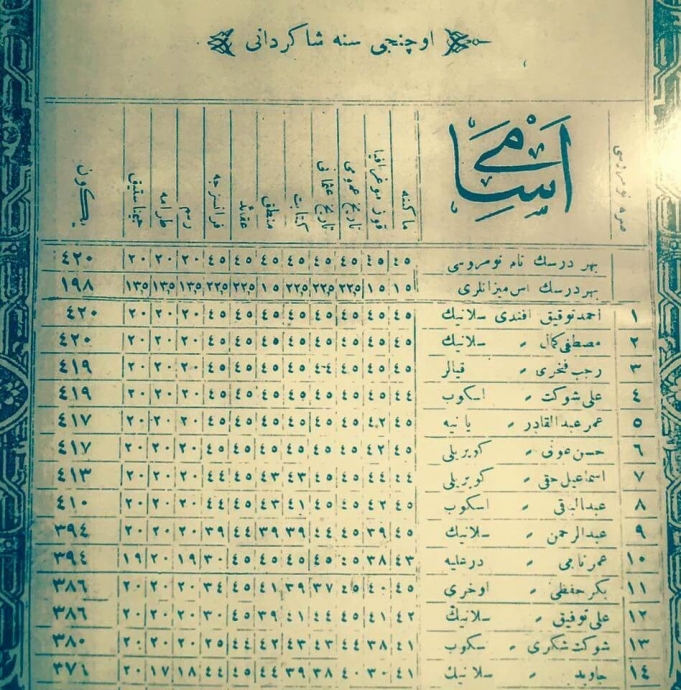 اوچنجی سنه شاكردانی
صره نومروسی اسامی ماكنه قوزموغرافیا تاریخ عمومی تاریخ عثمانی كتابت منطق عقائد فرانسزجه رسم طرامه جیمناستیق یكون
بهر درسك تام نومروسی ٤٥ ٤٥ ٤٥ ٤٥ ٤٥ ٤٥ ٤٥ ٤٥ ٢٠ ٢٠ ٢٠ ٤٢٠
بهر درسك اس میزانلری ١٥ ١٥ ٢٢,٥ ٢٢,٥ ٢٢,٥ ١٥ ٢٢,٥ ٢٢,٥ ١٣,٥ ١٣,٥ ١٣,٥ ١٩٨
١ احمد توفیق افندی سلانیك ٤٥ ٤٥ ٤٥ ٤٥ ٤٥ ٤٥ ٤٥ ٤٥ ٢٠ ٢٠ ٢٠ ٤٢٠
٢ مصطفی كمال » سلانیك ٤٥ ٤٥ ٤٥ ٤٥ ٤٥ ٤٥ ٤٥ ٤٥ ٢٠ ٢٠ ٢٠ ٤٢٠
٣ رجب فخری » قیالر ٤٥ ٤٥ ٤٥ ٤٤ ٤٥ ٤٥ ٤٥ ٤٥ ٢٠ ٢٠ ٢٠ ٤١٩
٤ علی شوكت » اسكوب ٤٤ ٤٥ ٤٥ ٤٥ ٤٥ ٤٥ ٤٥ ٤٥ ٢٠ ٢٠ ٢٠ ٤١٩
٥ عمر عبدالقادر » یانیه ٤٥ ٤٢ ٤٥ ٤٥ ٤٥ ٤٥ ٤٥ ٤٥ ٢٠ ٢٠ ٢٠ ٤١٧
٦ حسن عونی » كوپریلی ٤٥ ٤٢ ٤٥ ٤٥ ٤٥ ٤٥ ٤٥ ٤٥ ٢٠ ٢٠ ٢٠ ٤١٧
٧ اسماعیل حقی » كوپریلی ٤٤ ٤٤ ٤٥ ٤٥ ٤٣ ٤٣ ٤٥ ٤٤ ٢٠ ٢٠ ٢٠ ٤١٣
٨ عبدالباقی » اسكوب ٤٥ ٤٢ ٤٥ ٤٥ ٤١ ٤٣ ٤٥ ٤٤ ٢٠ ٢٠ ٢٠ ٤١٠
٩ عبدالرحمن » سلانیك ٤٥ ٣٩ ٤٥ ٤٤ ٣٩ ٣٩ ٤٤ ٣٩ ٢٠ ٢٠ ٢٠ ٣٩٤
١٠ عمر ناجی » درعلیه ٤٣ ٣٨ ٤٥ ٤٥ ٤٥ ٤٥ ٤٥ ٣٠ ١٩ ٢٠ ١٩ ٣٩٤
١١ بكر حفظی » اوخری ٤٥ ٤٠ ٤٥ ٣٧ ٣٩ ٤١ ٤٥ ٣٤ ٢٠ ٢٠ ٢٠ ٣٨٦
١٢ علی توفیق » سلانیك ٤٢ ٤١ ٤٥ ٤٤ ٣٩ ٤٥ ٣٠ ٢٠ ٢٠ ٢٠ ٣٨٦
١٣ شوكت شكری » سكوب ٤١ ٣٨ ٤٤ ٤٣ ٤٣ ٤٢ ٤٤ ٢٥ ٢٠ ٢٠ ٢٠ ٣٨٠
١٤ جاوید » سلانیك ٤١ ٣٠ ٤٠ ٣٨ ٣٩ ٤٤ ٤٥ ٤٤ ١٨ ١٧ ٢٠ ٣٧٦